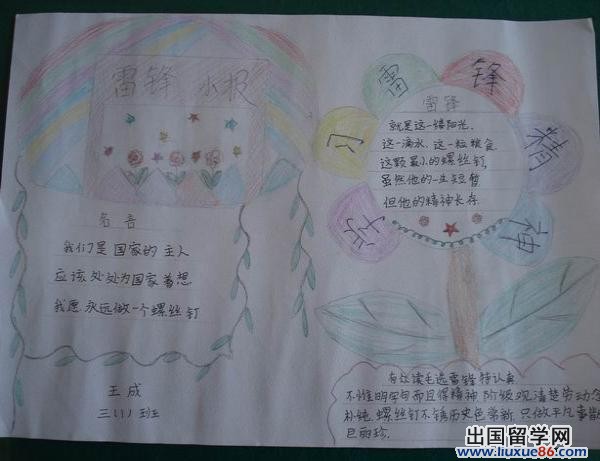 雷锋 小报
名言
我们是国家的主人
应该处处为国家着想
我愿永远做一个螺丝钉
王成
三(1)班
学习雷锋精神
雷锋
就是这一缕阳光.
这一滴水.这一粒粮食.
这颗最小的螺丝钉
虽然他的一生短暂
但他的精神长存
有位读毛选雷锋特认真
不惟明字句而且得精神 阶级观清楚劳动念
朴纯 螺丝钉不锈历史色常新 只做平凡事皆
巨丽珍.
出国留学网
www.liuxue86.com